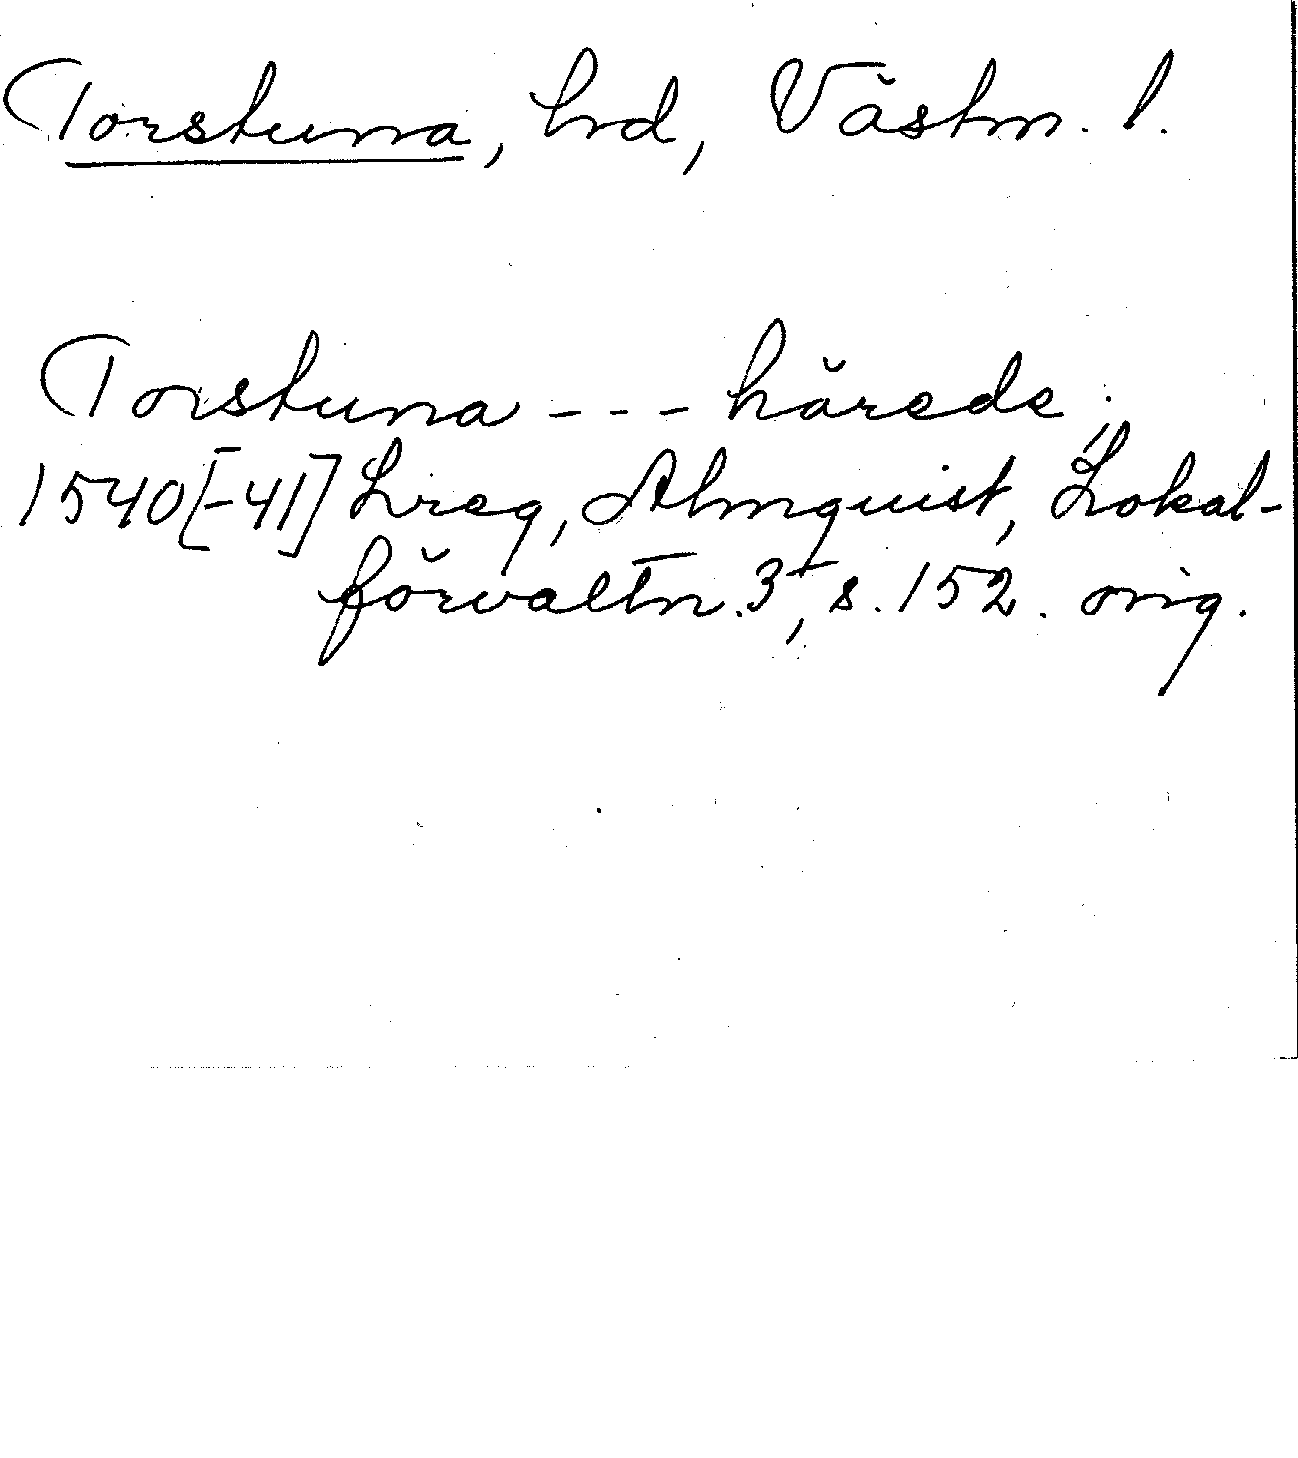 Torstuna, hrd, Västm. l.
Torstuna - - - härede
1540[-41] Lreg, Almquist, Lokal-
förvaltn. 3, s. 152. orig.